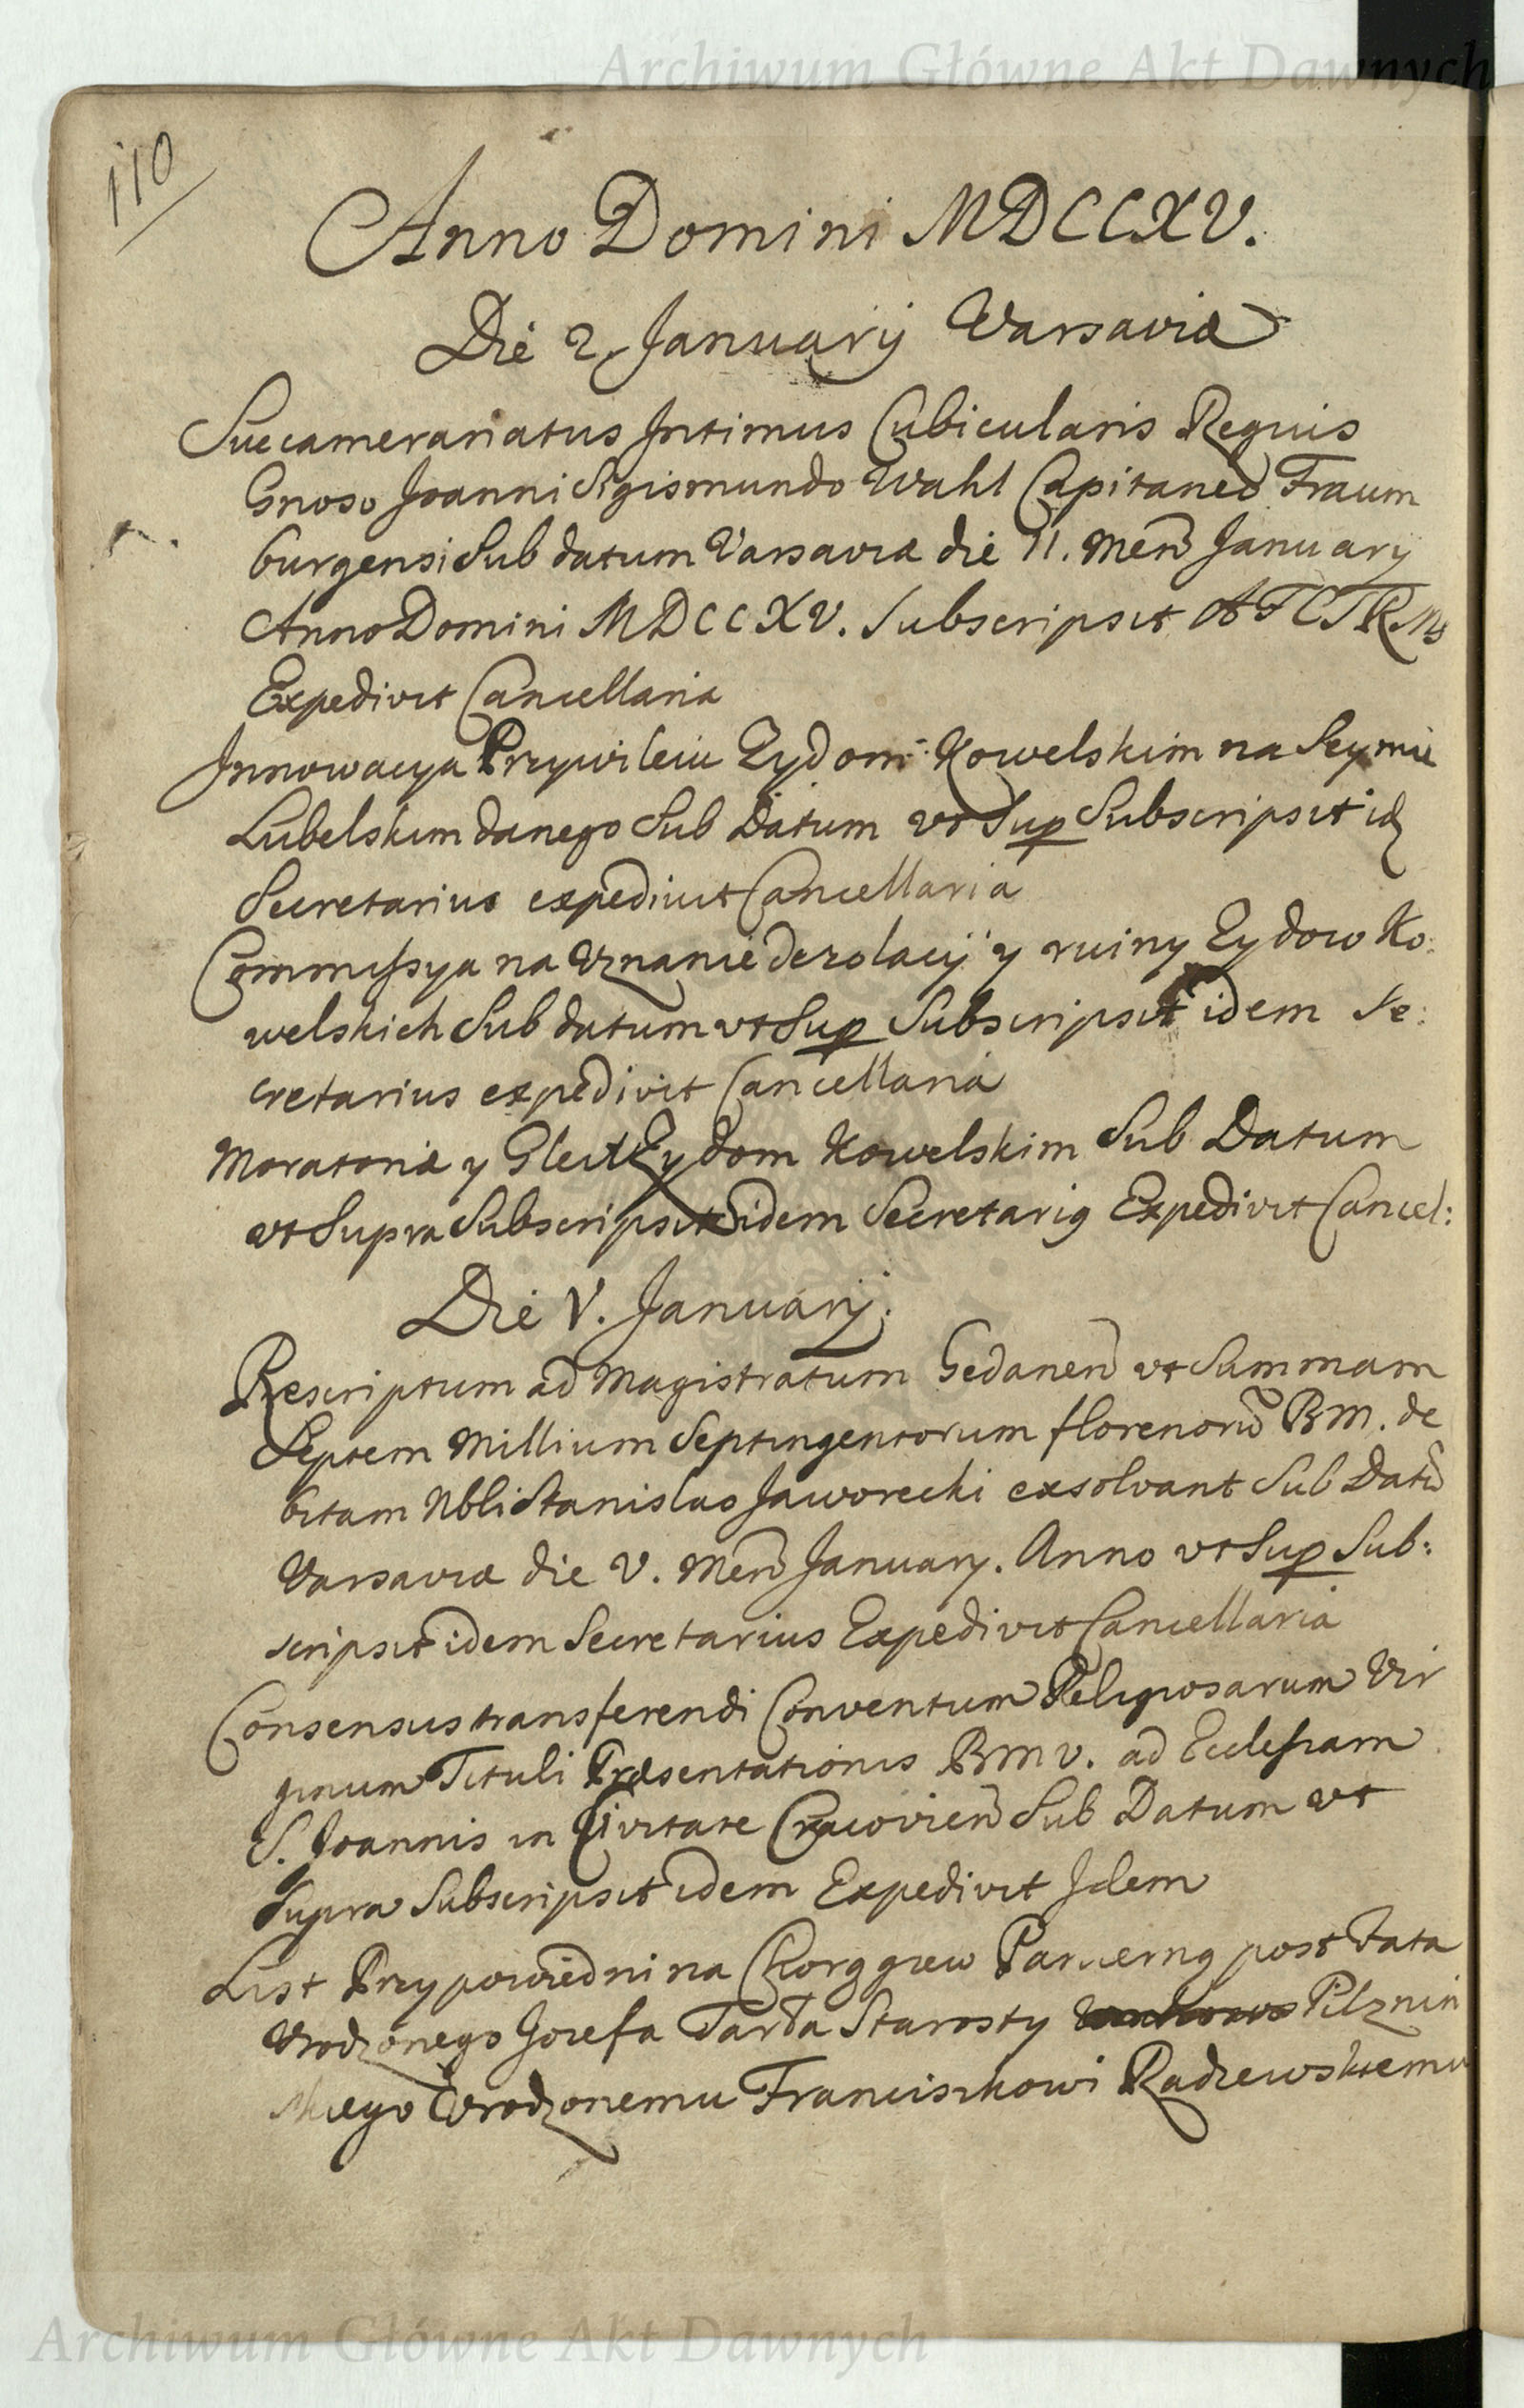 Archiwum Główne Akt Dawnych
110
Anno Domini MDCCXV.
Die 2 Januarij Varsaviæ
Succamerariatus Intimus Cubicularis Regius
Gnoso Joanni Sigismundo Wahl Capitaneo Fraum
burgensi Sub datum Varsaviæ die II. Mens January
Anno Domini MDCCXV. Subscripsit
Expedivit Cancellaria
Innowacya Przywileiu Zydom Kowelskim na Seymie
Lubelskim danego Sub Datum vt Sup Subscripsit id
Secretarius expedivit Cancellaria
Commissya na Vznanie dezolacij y ruiny Zydow Ko:
welskich Sub datum vt Sup Subscripsit idem Se:
cretarius expedivit Cancellaria
Moratoriæ y Gleit Zydom Kowelskim Sub Datum
vt Supra Subscripsit idem Secretarig Expedivit Cancel:
Die V. Januarij:
Rescriptum ad Magistratum Gedanen vt Summam
Septem Millium Septingentorum florenorū BM. de
bitam Nbli Stanislao Jaworecki exsolvant Sub Datū
Varsaviæ die V. Mens January. Anno vt Sup Sub:
scripsit idem Secretarius Expedivit Cancellaria
Consensus transferendi Conventum Religiosarum Vir
ginum Tituli Præsentationis BMV. ad Ecclesiam
S. Joannis in Civitate Cracovien Sub Datum vt
Supra Subscripsit idem Expedivit Idem
List Przypowiedni na Chorągiew Pancerną post Fata
Vrodzonego Jozefa Tarła Starosty Pilznin
skiego Vrodzonemu Franciszkowi Radzewskiemu
Archiwum Główne Akt Dawnych